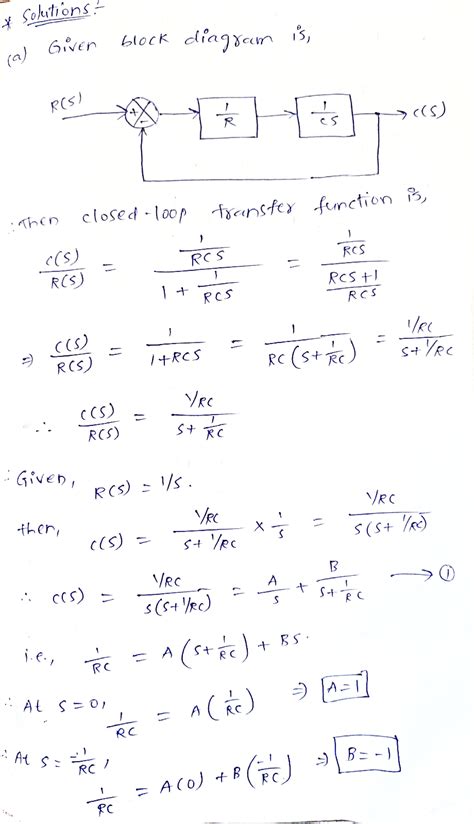 * Solutions:-
(a) Given block diagram is,
R(S) + - 1/R 1/CS → C(S)
∴ Then closed-loop transfer function is,
C(S)/R(S) = (1/RCS)/(1 + 1/RCS) = (1/RCS)/((RCS+1)/RCS)
⇒ C(S)/R(S) = 1/(1+RCS) = 1/(RC(S+1/RC)) = (1/RC)/(S+1/RC)
∴ C(S)/R(S) = (1/RC)/(S+1/RC)
∴ Given, R(S) = 1/S.
then, C(S) = (1/RC)/(S+1/RC) × 1/S = (1/RC)/(S(S+1/RC))
∴ C(S) = (1/RC)/(S(S+1/RC)) = A/S + B/(S+1/RC) → ①
i.e., 1/RC = A(S+1/RC) + BS.
∴ At S=0, 1/RC = A(1/RC) ⇒ A=1
∴ At S = -1/RC, 1/RC = A(0) + B(-1/RC) ⇒ B=-1